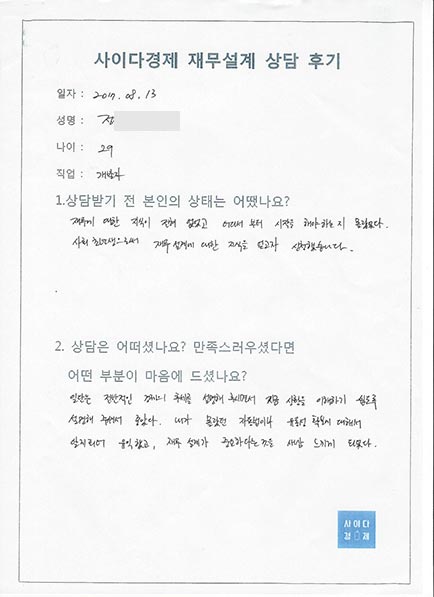 사이다경제 재무설계 상담 후기
일자 : 2017. 08. 13
성명 : 정
나이 : 29
직업 : 개발자
1.상담받기 전 본인의 상태는 어땠나요?
재무에 대한 지식이 전혀 없었고 어디서 부터 시작을 해야 하는지 몰랐었다.
사회 초년생으로써 재무 설계에 대한 지식을 얻고자 신청했습니다.
2. 상담은 어떠셨나요? 만족스러우셨다면
어떤 부분이 마음에 드셨나요?
일단은 전반적인 경제의 추세를 설명해 주시면서 지금 상황을 이해하기 쉽도록
설명해 주셔서 좋았다. 내가 몰랐던 유동성 확보에 대해서
알게되어 유익했고, 재무 설계가 중요하다는것을 새삼 느끼게 되었다.
사이다
경제